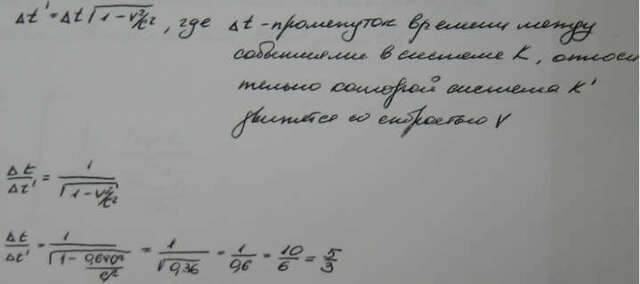 Δt' = Δt√(1 - v²/c²), где Δt - промежуток времени между
событиями в системе K, относи
тельно которой система K'
движется со скоростью V
Δt/Δt' = 1/√(1 - v²/c²)
Δt/Δt' = 1/√(1 - 0,64c²/c²) = 1/√0,36 = 1/0,6 = 10/6 = 5/3